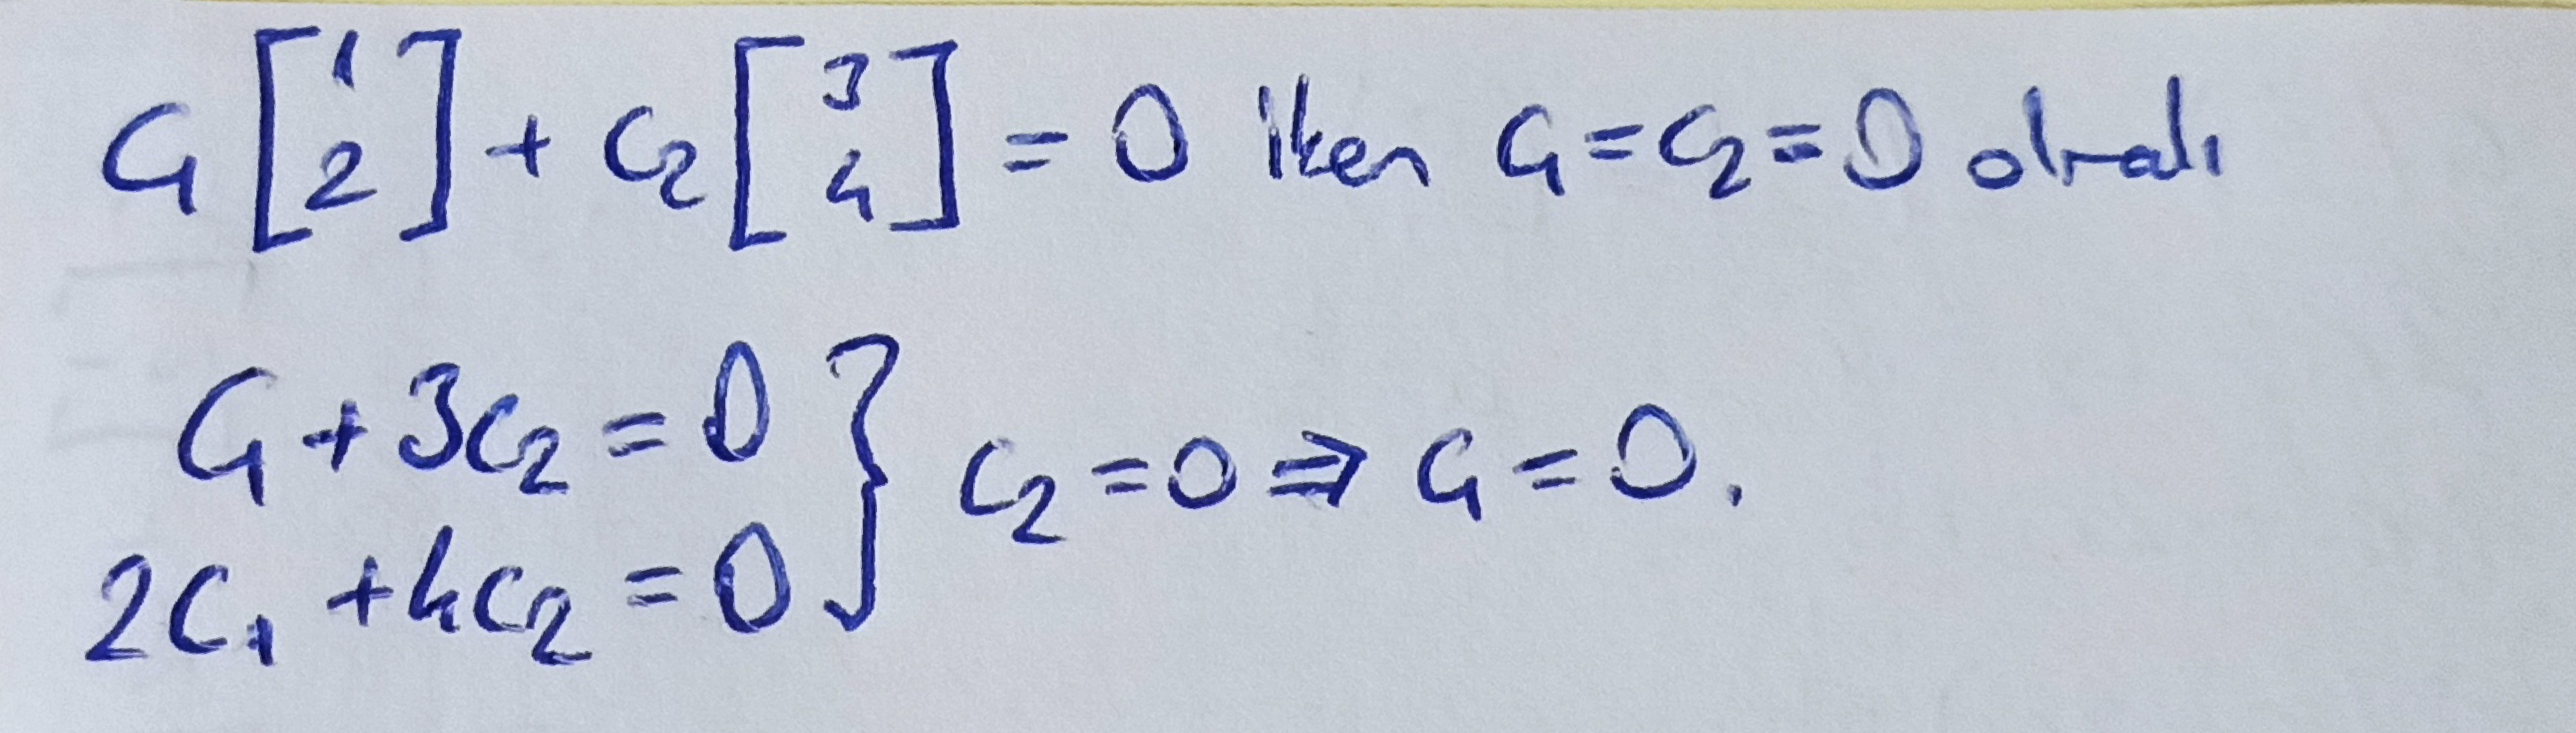 c₁ [1 2] + c₂ [3 4] = 0 iken c₁ = c₂ = 0 olmalı
c₁ + 3c₂ = 0
2c₁ + 4c₂ = 0 } c₂ = 0 ⇒ c₁ = 0.